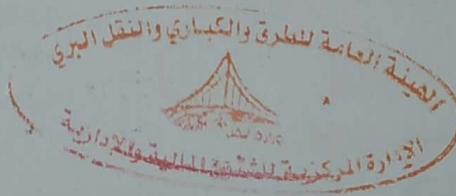 الهيئة العامة للطرق والكباري والنقل البري
وزارة النقل
الإدارة المركزية للشئون المالية والإدارية